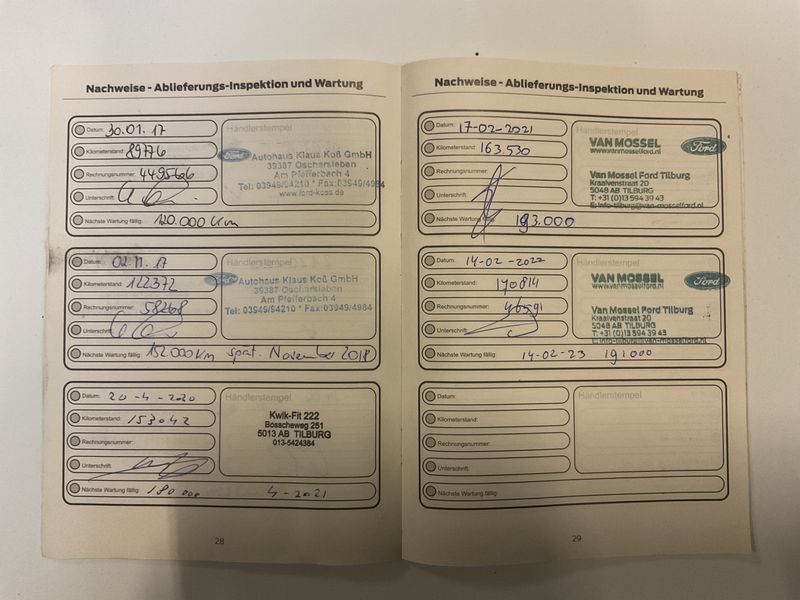 Nachweise - Ablieferungs-Inspektion und Wartung
Datum: 30.01.17
Händlerstempel
Kilometerstand: 89776
Ford Autohaus Klaus Koß GmbH
39387 Oschersleben
Rechnungsnummer: 4495606
Am Pfefferbach 4
Tel: 03949/94210 * Fax:03949/4984
Unterschrift:
www.ford-koss.de
Nächste Wartung fällig: 120.000 Km
Datum: 02.11.17
Händlerstempel
Kilometerstand: 122372
Autohaus Klaus Koß GmbH
39387 Oschersleben
Rechnungsnummer: 58268
Am Pfefferbach 4
Tel: 03949/94210 * Fax:03949/4984
Unterschrift:
Nächste Wartung fällig: 152.000 Km spät. November 2018
Datum: 20-4-2020
Händlerstempel
Kilometerstand: 153042
Kwik-Fit 222
Bosscheweg 251
5013 AB TILBURG
013-5424384
Rechnungsnummer:
Unterschrift:
Nächste Wartung fällig: 180 000 4-2021
28
Nachweise - Ablieferungs-Inspektion und Wartung
Datum: 17-02-2021
Händlerstempel
Kilometerstand: 163.530
VAN MOSSEL Ford
www.vanmosselford.nl
Rechnungsnummer:
Van Mossel Ford Tilburg
Kraaivenstraat 20
5048 AB TILBURG
Unterschrift:
T: +31 (0)13 594 39 43
E: info-tilburg@vanmosselford.nl
Nächste Wartung fällig: 193.000
Datum: 14-02-2022
Händlerstempel
Kilometerstand: 170814
VAN MOSSEL Ford
www.vanmosselford.nl
Rechnungsnummer: 46591
Van Mossel Ford Tilburg
Kraaivenstraat 20
5048 AB TILBURG
Unterschrift:
T: +31 (0)13 594 39 43
E: info-tilburg@vanmosselford.nl
Nächste Wartung fällig: 14-02-23 191000
Datum:
Händlerstempel
Kilometerstand:
Rechnungsnummer:
Unterschrift:
Nächste Wartung fällig:
29